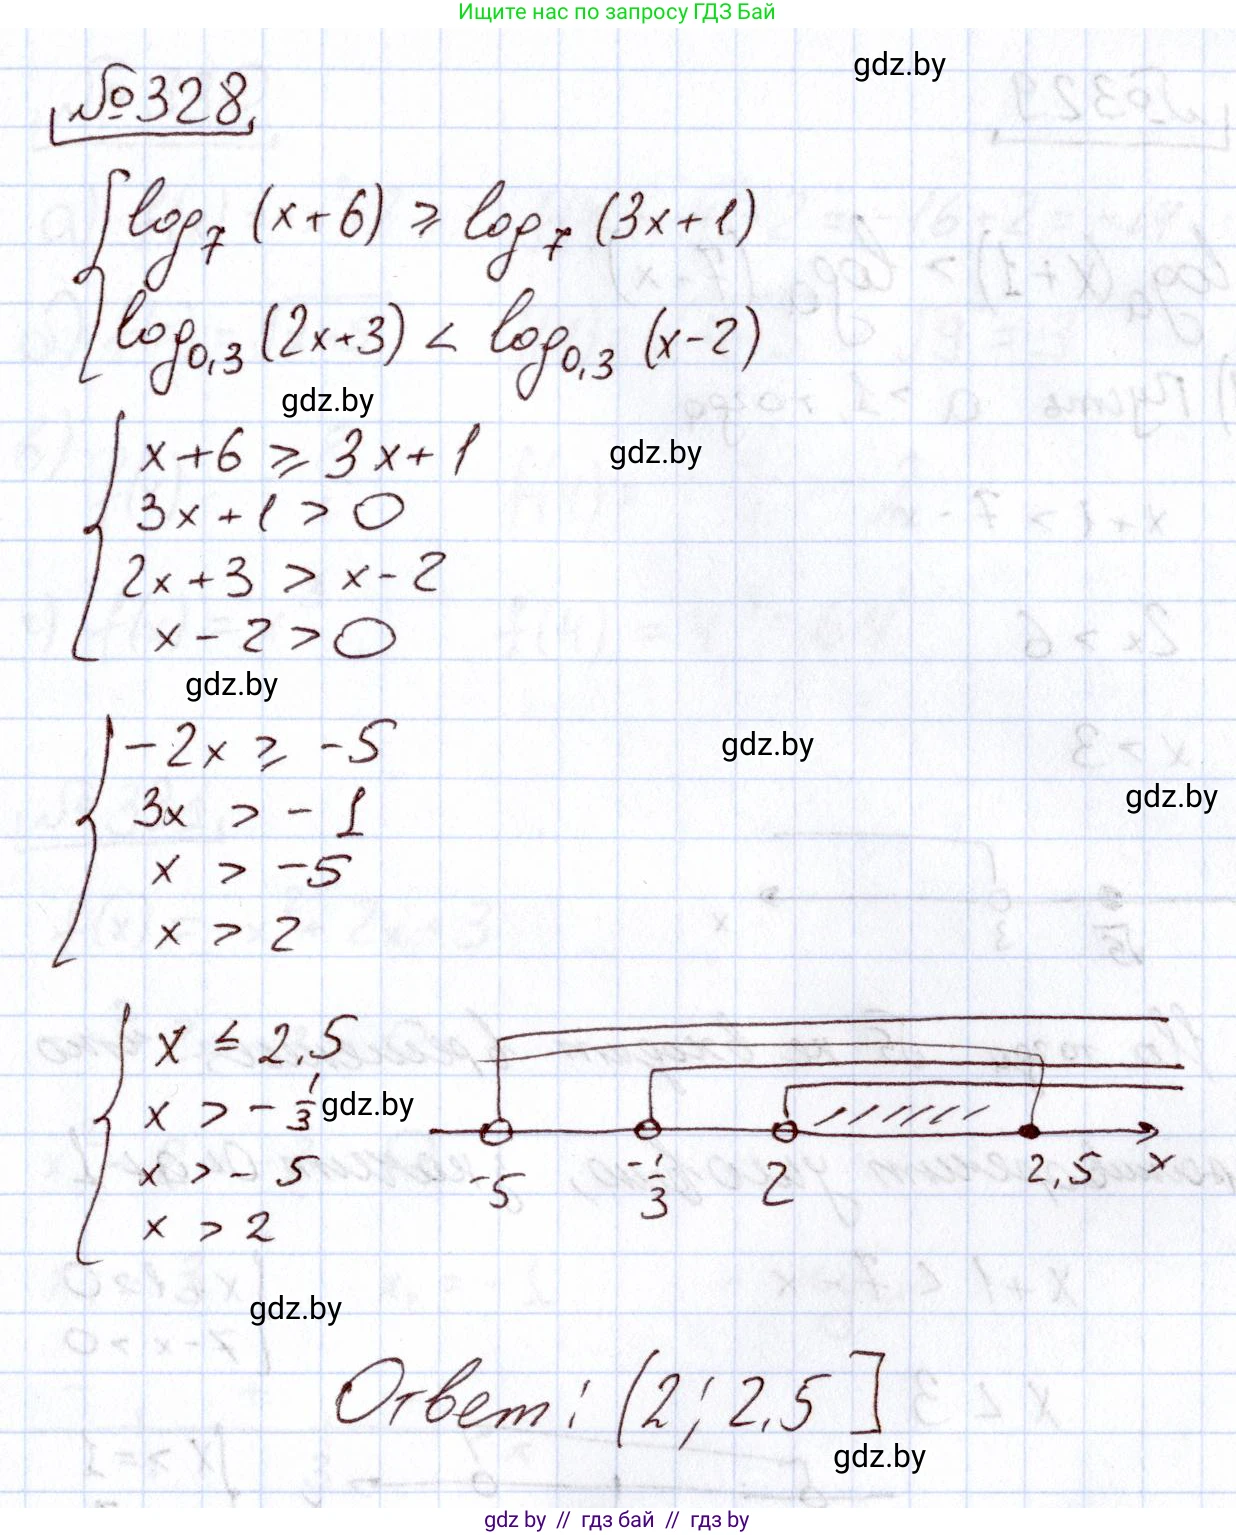 Ищите нас по запросу ГДЗ Бай
gdz.by
№328
log₇ (x+6) ≥ log₇ (3x+1)
log₀,₃ (2x+3) < log₀,₃ (x-2)
gdz.by
x+6 ≥ 3x+1
gdz.by
3x+1 > 0
2x+3 > x-2
x-2 > 0
gdz.by
-2x ≥ -5
gdz.by
3x > -1
gdz.by
x > -5
x > 2
x ≤ 2,5
x > - 1/3
gdz.by
x > -5
x > 2
-5 -1/3 2 2,5 x
gdz.by
Ответ: (2; 2,5]
gdz.by
gdz by // гдз бай // гдз by